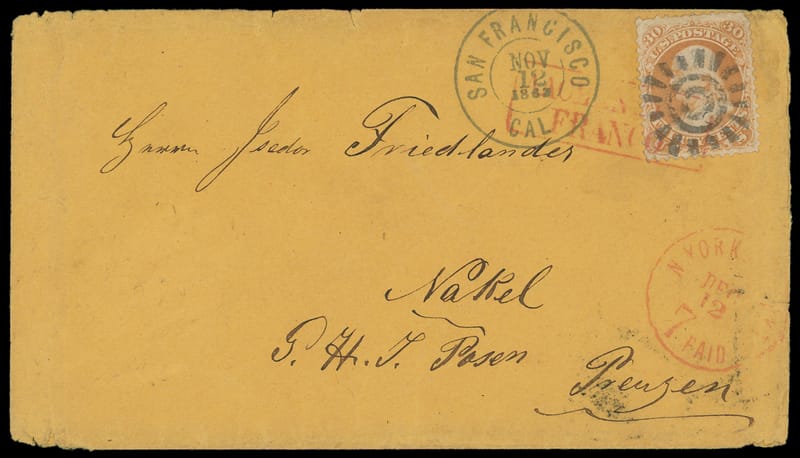 SAN FRANCISCO
NOV
12
1863
CAL
FRANCO
30 30
U.S. POSTAGE
Herrn Isedor Friedlander
N YORK
DEC
12
7
PAID
Nakel
P. H. T. Posen
Preuzen